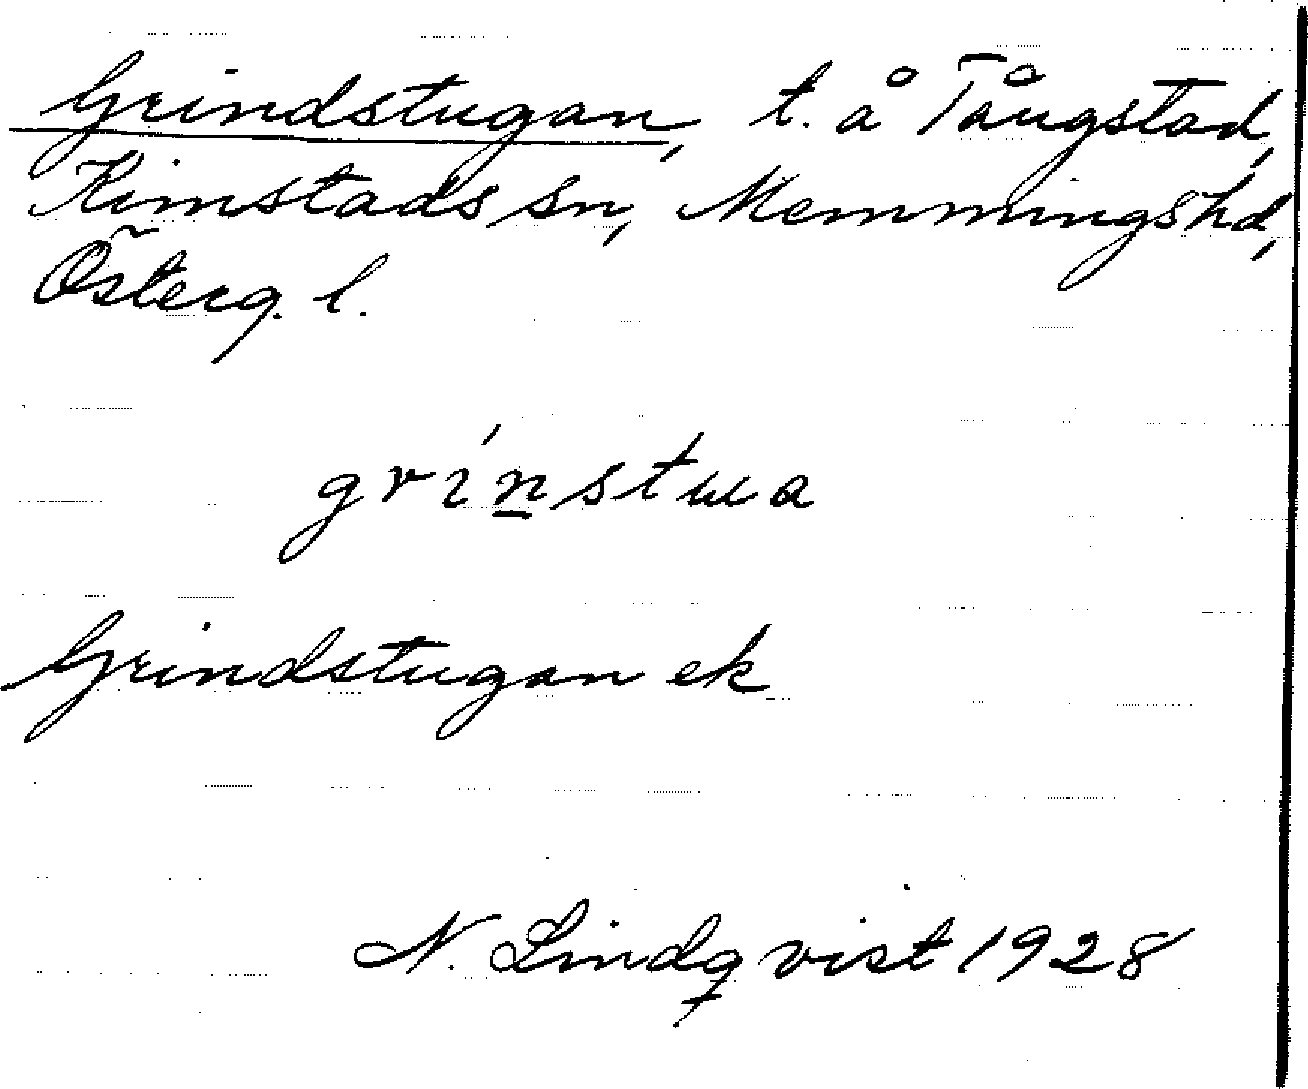 Grindstugan, t. å Tångstad,
Kimstads sn, Memmingshd,
Österg. l.
gri´nstwa
Grindstugan ek
N. Lindqvist 1928